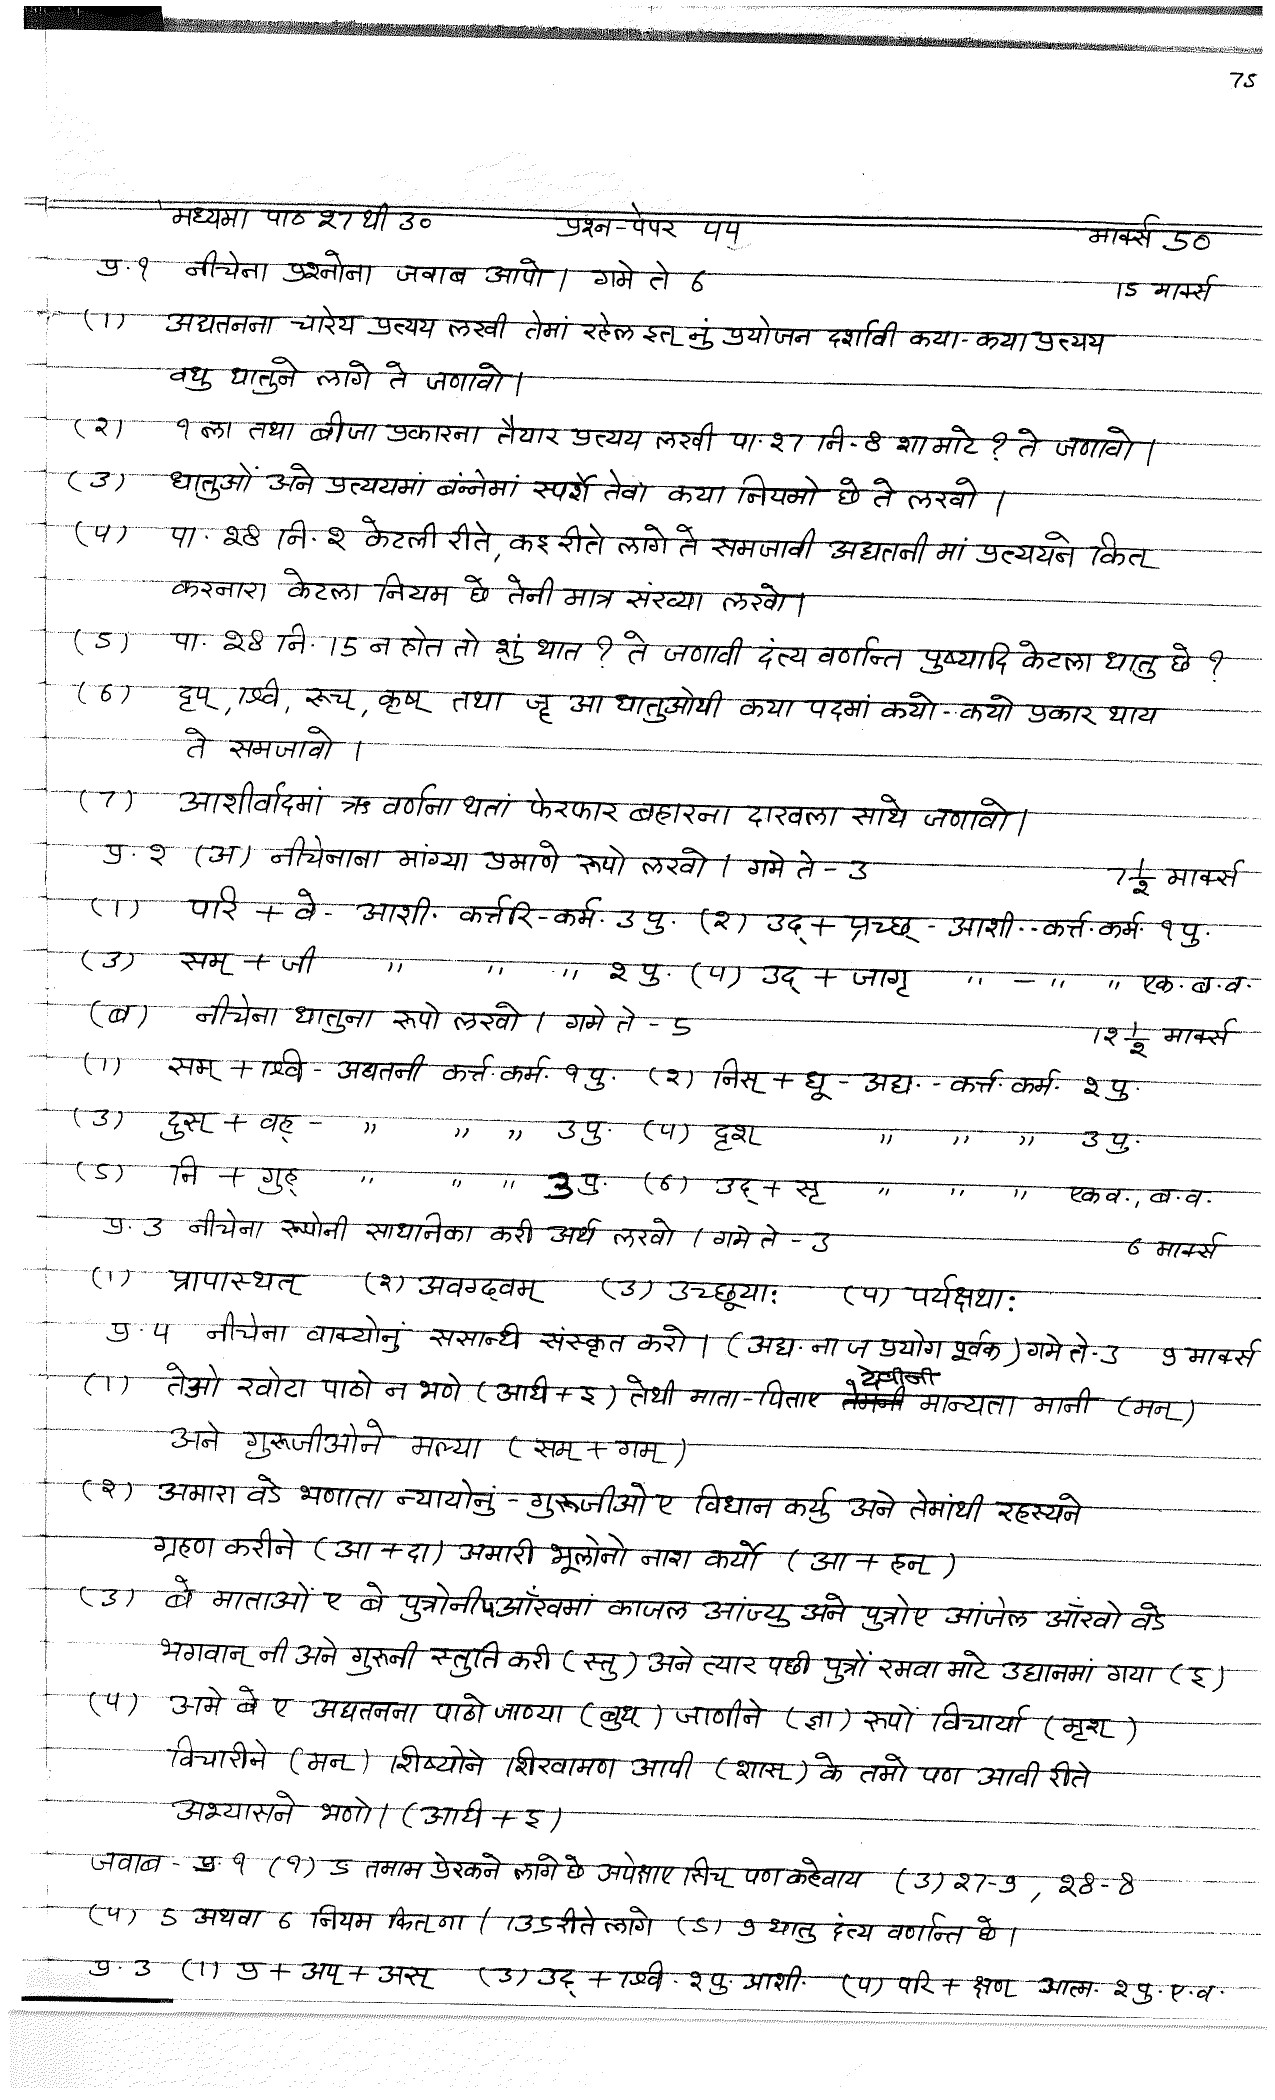 75
मध्यमा पाठ २7 थी 3०    प्रश्न-पेपर ५५    मार्क्स 50
प्र.१ नीचेना प्रश्नोना जवाब आपो। गमे ते 6    15 मार्क्स
(1) अद्यतनना चारेय प्रत्यय लखी तेमां रहेल इत् नुं प्रयोजन दर्शावी कया-कया प्रत्यय
वधु धातुने लागे ते जणावो।
(२) १ला तथा बीजा प्रकारना तैयार प्रत्यय लखी पा.२7 नि-8 शा माटे? ते जणावो।
(3) धातुओं अने प्रत्ययमां बंन्नेमां स्पर्शे तेवा कया नियमो छे ते लखो।
(५) पा. २8 नि.२ केटली रीते, कइ रीते लागे ते समजावी अद्यतनी मां प्रत्ययने कित्
करनारा केटला नियम छे तेनी मात्र संख्या लखो।
(5) पा. २8 नि.15 न होत तो शुं थात? ते जणावी दंत्य वर्णान्त पुष्यादि केटला धातु छे?
(6) दृप्, श्वि, रूच्, कृष् तथा जॄ आ धातुओयी कया पदमां कयो-कयो प्रकार थाय
ते समजावो।
(7) आशीर्वादमां ऋ वर्णना थतां फेरफार बहारना दाखला साथे जणावो।
प्र.२ (अ) नीचेनाना मांग्या प्रमाणे रूपो लखो। गमे ते-3    7 1/२ मार्क्स
(1) परि + वे - आशी. कर्त्तरि-कर्म. 3 पु. (२) उद् + प्रच्छ् - आशी.-कर्त्त.कर्म. १ पु.
(3) सम् + जी " " " २ पु. (५) उद् + जागृ " - " " एक. ब.व.
(ब) नीचेना धातुना रूपो लखो। गमे ते-5    1२ 1/२ मार्क्स
(1) सम् + श्वि - अद्यतनी कर्त्त.कर्म. १ पु. (२) निस् + धू - अद्य.- कर्त्त.कर्म. २ पु.
(3) दुस् + वह् - " " " 3 पु. (५) दृश् " " " 3 पु.
(5) नि + गुह् " " " 3 पु. (6) उद् + सृ " " " एकव., ब.व.
प्र.3 नीचेना रूपोनी साधनिका करी अर्थ लखो। गमे ते-3    6 मार्क्स
(1) प्रापास्थत् (२) अवग्द्वम् (3) उच्छूयाः (५) पर्यक्षथाः
प्र.५ नीचेना वाक्योनुं ससन्धी संस्कृत करो। (अद्य. ना ज प्रयोग पूर्वक) गमे ते-3    9 मार्क्स
(1) तेओ खोटा पाठो न भणे (अधि + इ) तेथी माता-पिताए देवीनी मान्यता मानी (मन्)
अने गुरूजीओने मल्या (सम् + गम्)
(२) अमारा वडे भणाता न्यायोनुं - गुरूजीओ ए विधान कर्यु अने तेमांथी रहस्यने
ग्रहण करीने (आ + दा) अमारी भूलोनो नाश कर्यो (आ + हन्)
(3) बे माताओं ए बे पुत्रोनी आँखमां काजल आंज्यु अने पुत्रोए आंजेल आँखो वडे
भगवान् नी अने गुरुनी स्तुति करी (स्तु) अने त्यार पछी पुत्रों रमवा माटे उद्यानमां गया (इ)
(५) अमे बे ए अद्यतनना पाठो जाण्या (बुध्) जाणीने (ज्ञा) रूपो विचार्या (मृश्)
विचारीने (मन्) शिष्योने शिखामण आपी (शास्) के तमो पण आवी रीते
अभ्यासने भणो। (अधि + इ)
जवाब - प्र.१ (१) 5 तमाम प्रेरकने लागे छे अपेक्षाए सिच् पण कहेवाय (3) २7-9, २8-8
(५) 5 अथवा 6 नियम कित् ना। 135 रीते लागे (5) 9 धातु दंत्य वर्णान्त छे।
प्र.3 (1) प्र + अप + अस् (3) उद् + श्वि. २ पु. आशी. (५) परि + क्षण् आत्म. २ पु. ए.व.